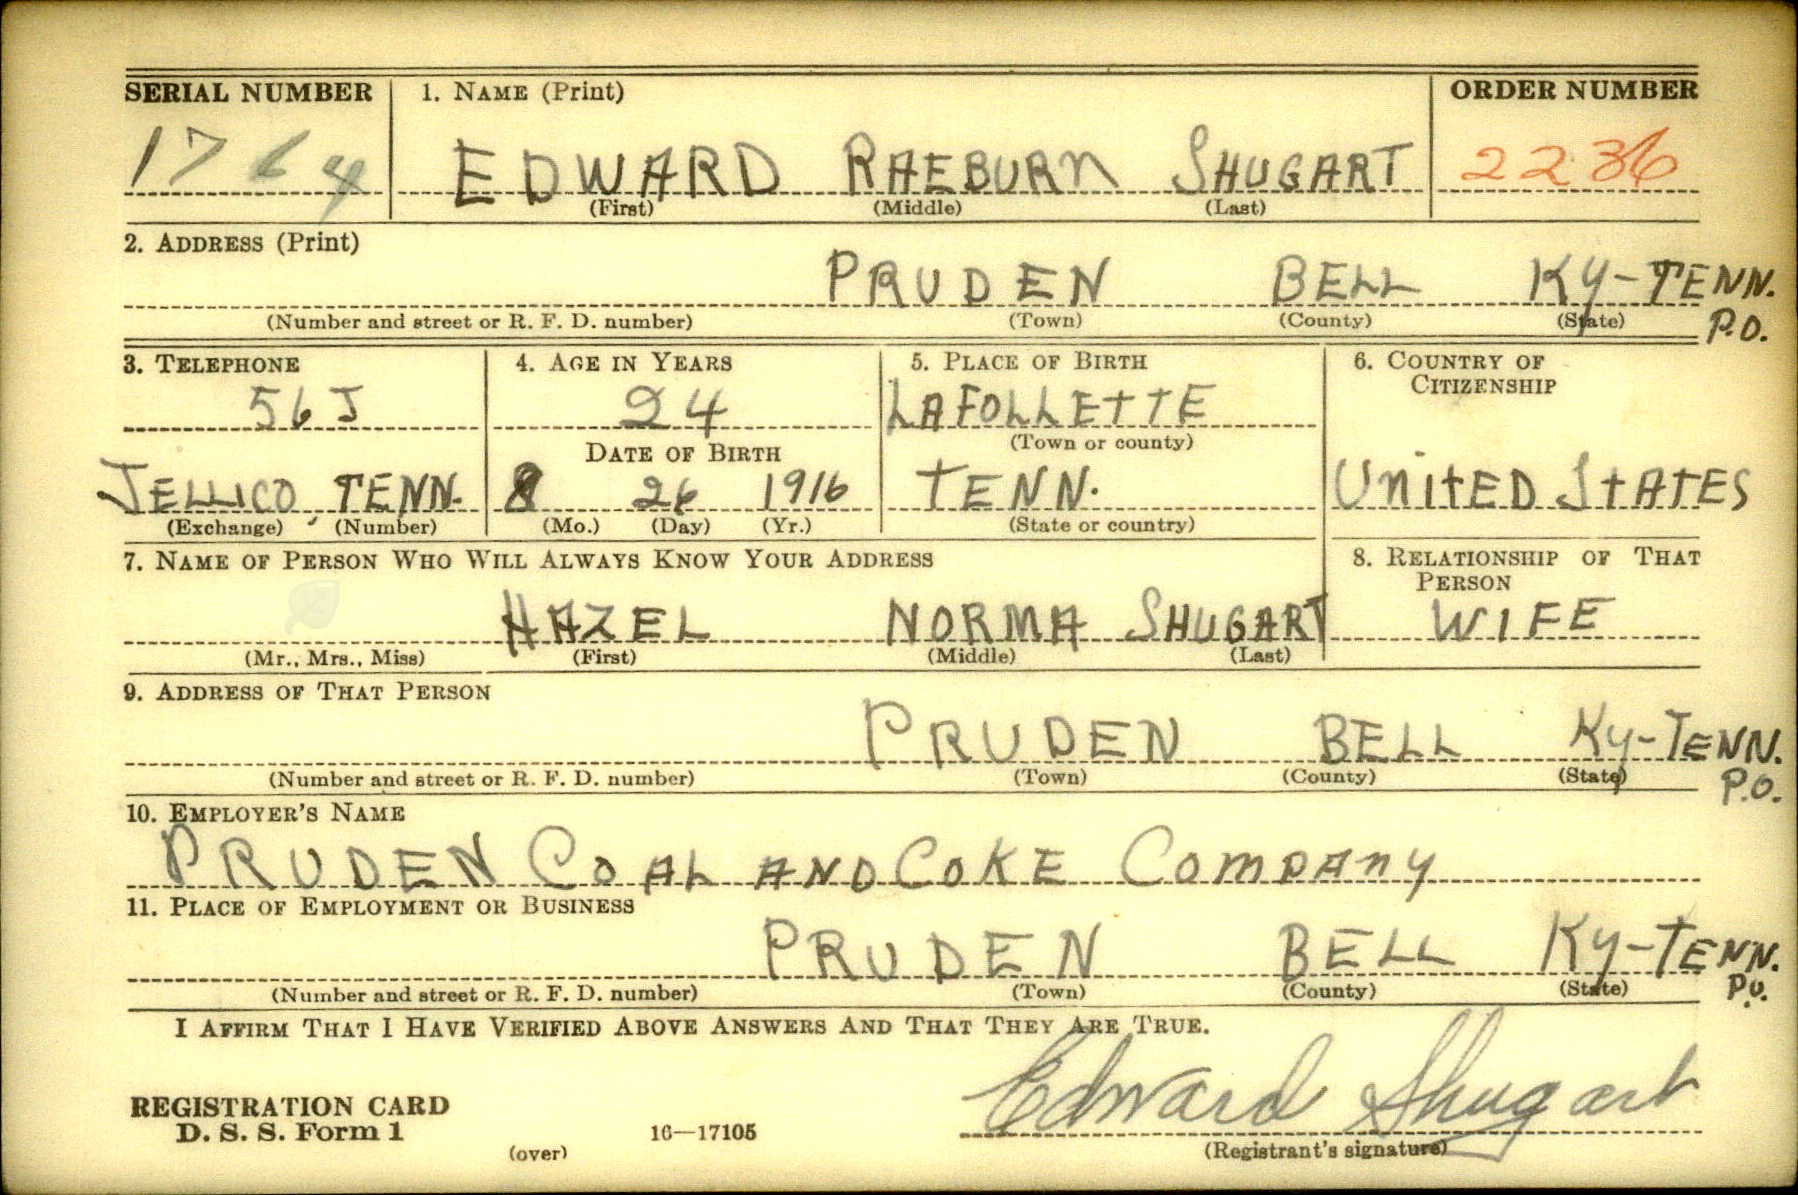 SERIAL NUMBER
1764
1. NAME (Print)
EDWARD RAEBURN SHUGART
(First) (Middle) (Last)
ORDER NUMBER
2236
2. ADDRESS (Print)
PRUDEN BELL KY-TENN.
P.O.
(Number and street or R. F. D. number) (Town) (County) (State)
3. TELEPHONE
56J
JELLICO TENN.
(Exchange) (Number)
4. AGE IN YEARS
24
DATE OF BIRTH
8 26 1916
(Mo.) (Day) (Yr.)
5. PLACE OF BIRTH
LAFOLLETTE
(Town or county)
TENN.
(State or country)
6. COUNTRY OF
CITIZENSHIP
UNITED STATES
7. NAME OF PERSON WHO WILL ALWAYS KNOW YOUR ADDRESS
HAZEL NORMA SHUGART
(Mr., Mrs., Miss) (First) (Middle) (Last)
8. RELATIONSHIP OF THAT
PERSON
WIFE
9. ADDRESS OF THAT PERSON
PRUDEN BELL KY-TENN.
P.O.
(Number and street or R. F. D. number) (Town) (County) (State)
10. EMPLOYER'S NAME
PRUDEN COAL AND COKE COMPANY
11. PLACE OF EMPLOYMENT OR BUSINESS
PRUDEN BELL KY-TENN.
P.O.
(Number and street or R. F. D. number) (Town) (County) (State)
I AFFIRM THAT I HAVE VERIFIED ABOVE ANSWERS AND THAT THEY ARE TRUE.
Edward Shugart
(Registrant's signature)
REGISTRATION CARD
D. S. S. Form 1
(over)
16—17105